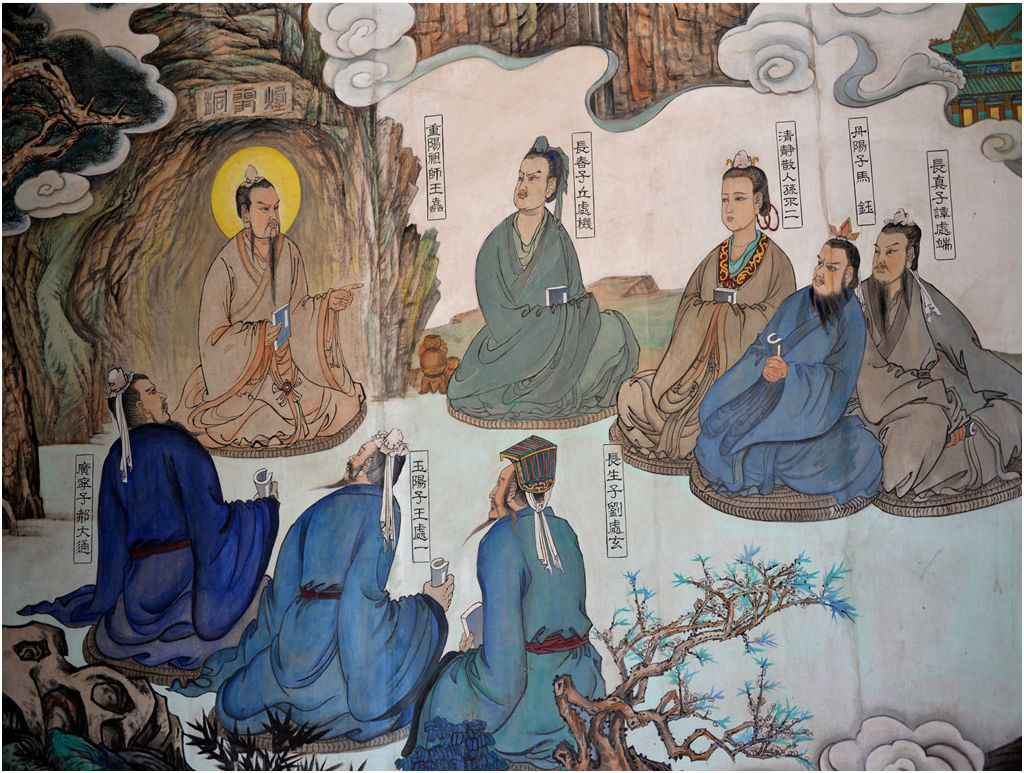 煙霞洞
重陽祖師王嘉
長春子丘處機
清静散人孫不二
丹陽子馬 鈺
長真子譚處端
廣寧子郝大通
玉陽子王處一
長生子劉處玄